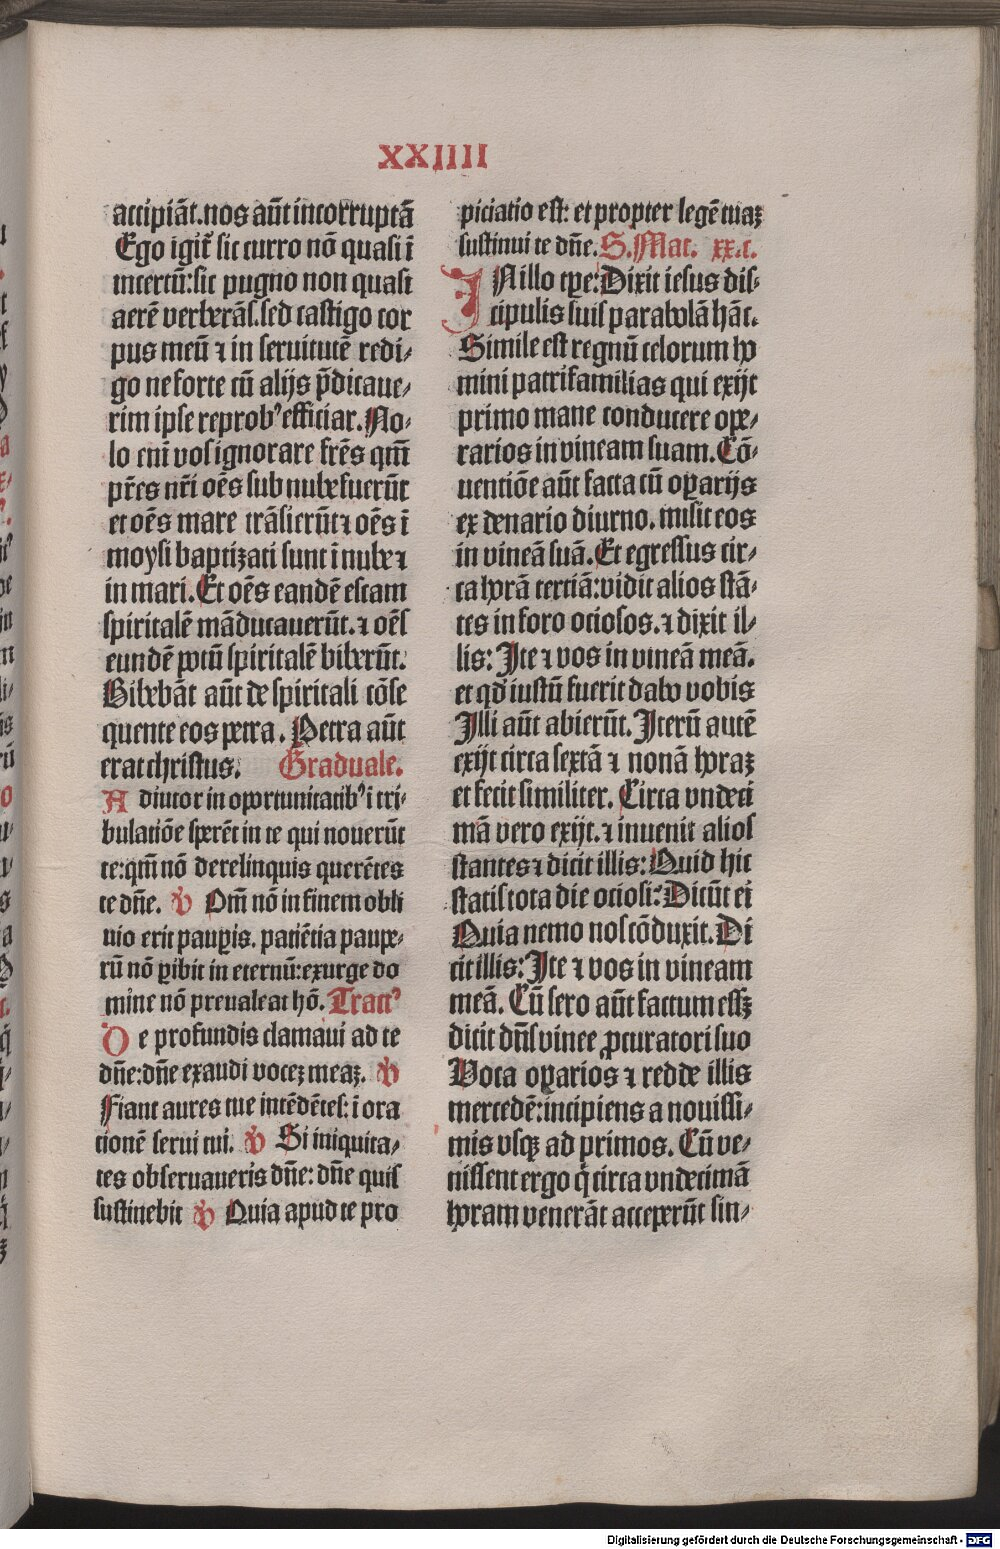 XXIIII
accipiāt.nos aūt incorruptā
Ego igit᷑ sic curro nō quasi ī
incertū:sic pugno non quasi
aerē verberās.sed castigo cor
pus meū ⁊ in seruitutē redi⸗
go ne forte cū alijs p̄dicaue⸗
rim ipse reprobꝰ efficiar.No⸗
lo eni vos ignorare frēs qm̄
pr̄es nr̄i oēs sub nube fuerūt
et oēs mare trāsierūt ⁊ oēs ī
moysi baptizati sunt ī nube ⁊
in mari.Et oēs eandē escam
spiritalē māducauerūt.⁊ oēs
eundē potū spiritalē biberūt.
Bibebāt aūt de spiritali cōse
quente eos petra. Petra aūt
erat christus. Graduale.
Adiutor in oportunitatibꝰ ī tri⸗
bulatiōe sperēt in te qui nouerūt
te:qm̄ nō derelinquis querētes
te dn̄e. ℣ Qm̄ nō in finem obli
uio erit paup̲is. patiētia paupe⸗
rū nō p̲ibit in eternū:exurge do
mine nō preualeat hō. Tractꝰ
De profundis clamaui ad te
dn̄e:dn̄e exaudi vocēz meaz. ℣
Fiant aures tue intēdētes:ī ora
tionē serui tui. ℣ Si iniquita⸗
tes obseruaueris dn̄e:dn̄e quis
sustinebit ℣ Quia apud te pro
piciatio est: et propter legē tuaz
sustinui te dn̄e. S.Mat. xx.c.
IN illo tp̲e:Dixit iesus dis⸗
cipulis suis parabolā hāc.
Simile est regnū celorum ho
mini patrifamilias qui exijt
primo mane conducere ope⸗
rarios in vineam suam.Cō⸗
uentiōe aūt facta cū op̲arijs
ex denario diurno. misit eos
in vineā suā.Et egressus cir⸗
ca horā terciā:vidit alios stā⸗
tes in foro ociosos.⁊ dixit il⸗
lis: Ite ⁊ vos in vineā meā.
et qd̄ iustū fuerit dabo vobis
Illi aūt abierūt.Iterū autē
exijt circa sextā ⁊ nonā horaz
et fecit similiter. Circa vndeci
mā vero exijt.⁊ inuenit alios
stantes ⁊ dicit illis:Quid hic
statis tota die ociosi:Dicūt ei
Quia nemo nos cōduxit.Di
cit illis:Ite ⁊ vos in vineam
meā. Cū sero aūt factum essꝫ
dicit dn̄s vinee ꝓcuratori suo
Voca op̲arios ⁊ redde illis
mercedē:incipiens a nouissi⸗
mis vsqꝫ ad primos. Cū ve⸗
nissent ergo q̄ circa vndecimā
horam venerāt acceperūt sin⸗
Digitalisierung gefördert durch die Deutsche Forschungsgemeinschaft - DFG